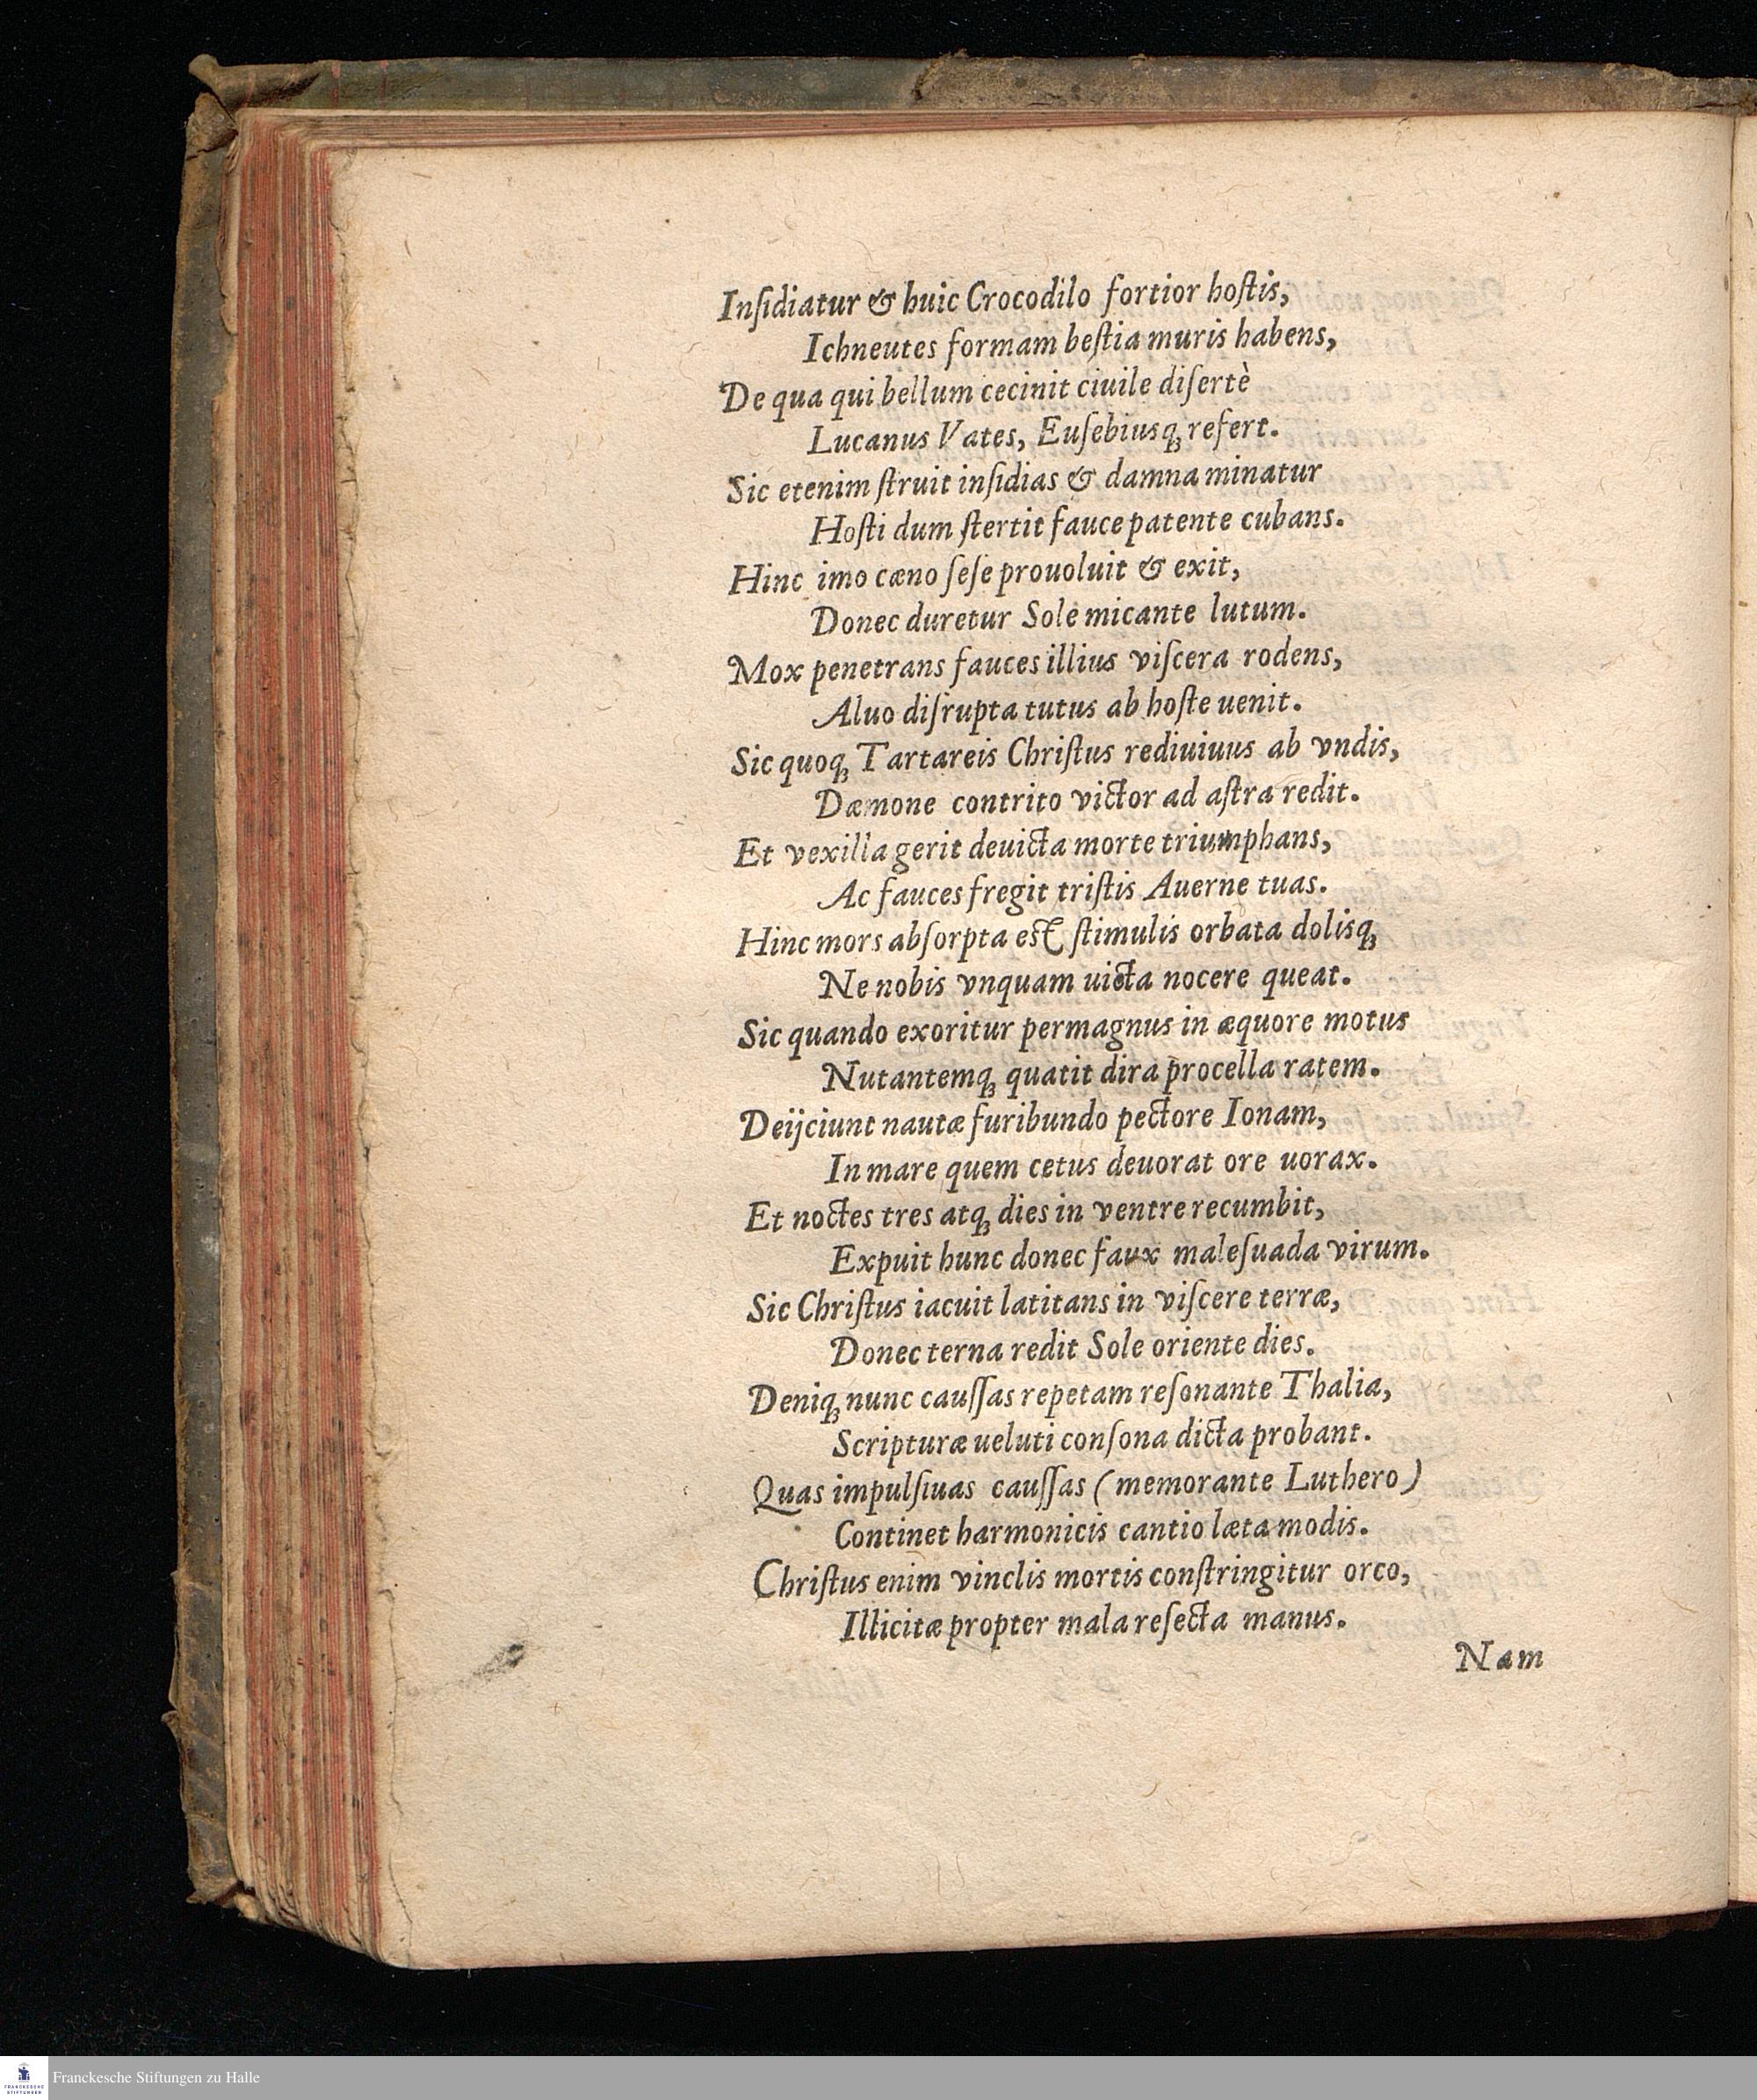 Inſidiatur & huic Crocodilo fortior hoſtis,
Ichneutes formam beſtia muris habens,
De qua qui bellum cecinit ciuile diſertè
Lucanus Vates, Euſebiusq́ꝫ refert.
Sic etenim ſtruit inſidias & damna minatur
Hoſti dum ſtertit fauce patente cubans.
Hinc imo cæno ſeſe prouoluit & exit,
Donec duretur Sole micante lutum.
Mox penetrans fauces illius viſcera rodens,
Aluo diſrupta tutus ab hoſte uenit.
Sic quoqꝫ Tartareis Chriſtus rediuiuus ab vndis,
Dæmone contrito victor ad aſtra redit.
Et vexilla gerit deuicta morte triumphans,
Ac fauces fregit triſtis Auerne tuas.
Hinc mors abſorpta est ſtimulis orbata dolisqꝫ
Ne nobis vnquam uicta nocere queat.
Sic quando exoritur permagnus in æquore motus
Nutantemqꝫ quatit dira procella ratem.
Deijciunt nautæ furibundo pectore Ionam,
In mare quem cetus deuorat ore uorax.
Et noctes tres atqꝫ dies in ventre recumbit,
Expuit hunc donec faux maleſuada virum.
Sic Chriſtus iacuit latitans in viſcere terræ,
Donec terna redit Sole oriente dies.
Deniqꝫ nunc cauſſas repetam reſonante Thalia,
Scripturæ ueluti conſona dicta probant.
Quas impulſiuas cauſſas (memorante Luthero)
Continet harmonicis cantio læta modis.
Chriſtus enim vinclis mortis conſtringitur orco,
Illicitæ propter mala reſecta manus.
Nam
FRANCKESCHE
STIFTUNGEN
Franckesche Stiftungen zu Halle